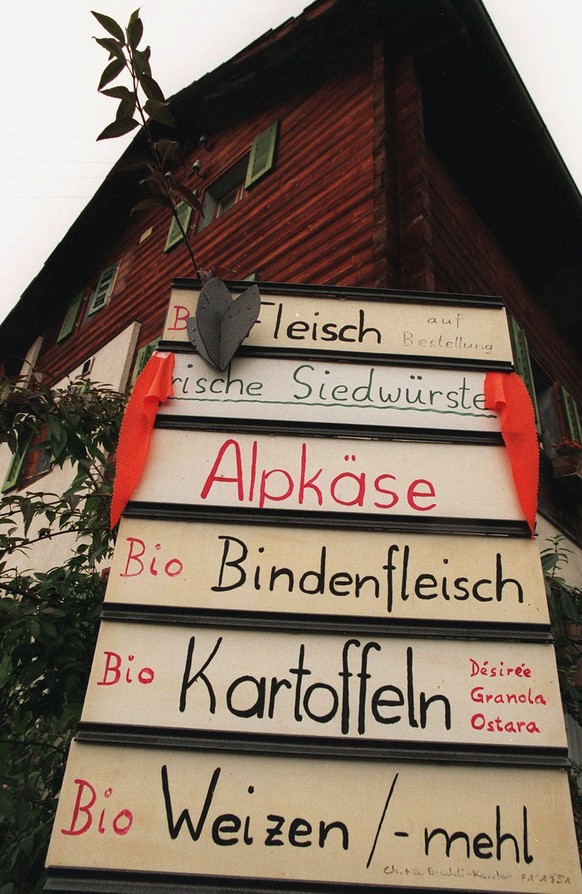 Fleisch auf Bestellung
rische Siedwürste
Alpkäse
Bio Bindenfleisch
Bio Kartoffeln Désirée Granola Ostara
Bio Weizen/-mehl